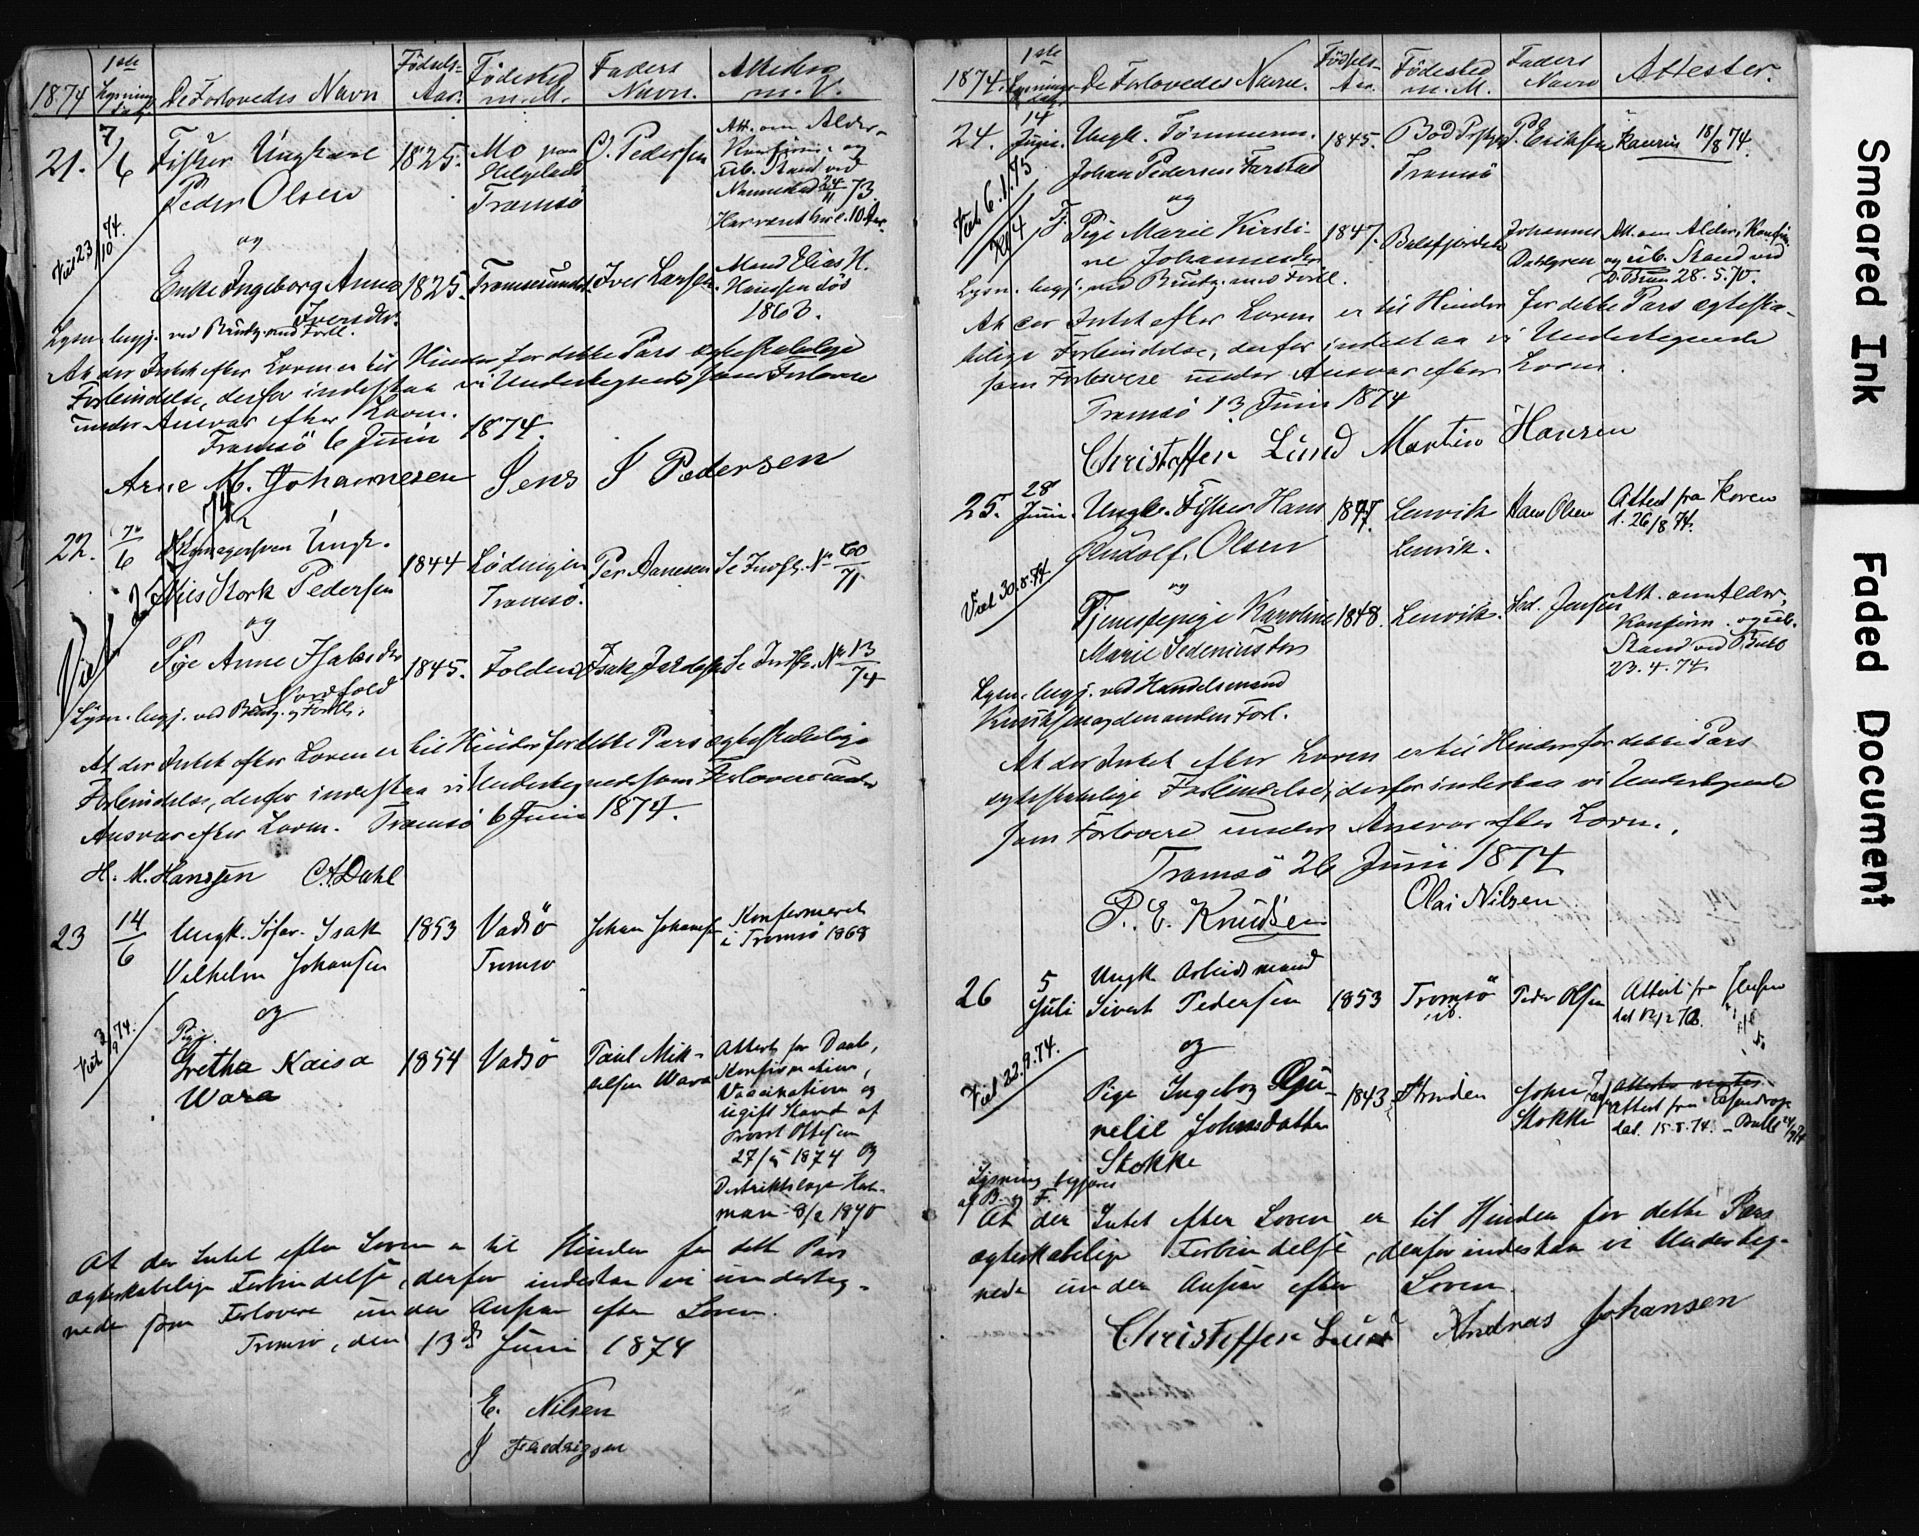 1874
1ste
Lysnings
Dag.
De Forlovedes Navn
Fødsels-
Aar.
Fødested
m.M.
Faders
Navn.
Attester
m.V.
21.
7/6
Fisker Ungkarl
Peder Olsen
1825.
Mo paa
Helgeland
Tromsö
O. Pedersen
Att. om Alder,
Konfirm. og
ub. Stand ved
24/11 73
Viet 23/10 74.
og
Enke Ingeborg Anna
Iversdtr.
1825.
Tromsesundet
Iver Larsen.
Mand Elias H.
Hanssen dös
1863.
Lysn. begj. ved Brudg. med Forll.
At der Intet efter Loven er til Hinder for dette Pars ægteskabelige
Forbindelse, derfor indestaa vi Undertegnede som Forlovere
under Ansvar efter Loven.
Tromsö 6 Juni 1874.
Arne M. Johannesen Jens J Pedersen
22.
7/6
Ungk.
Nils Stork Pedersen
1844
Lödingen
Tromsö.
Per Aanesen
Se Indfl. No 60/71
og
Pige Anne Isaksdtr
Nordfold
1845.
Folden
Isak
Se Indfl. No 13/74
Lysn. begj. ved Brudg. og Forll.
At der Intet efter Loven er til Hinder for dette Pars ægteskabelige
Forbindelse, derfor indestaa vi Undertegnede som Forlovere under
Ansvar efter Loven. Tromsö 6 Juni 1874.
H. M. Hanssen C. A. Dahl
23
14/6
Ungk. Söfar. Isak
Vilhelm Johansen
1853
Vadsö
Tromsö
Johan Johansen
Konfirmeret
i Tromsö 1868
Viet 3/9 74.
og
Pige
Gretha Kaisa
Wara
1854
Vadsö
Paul Mik-
kelsen Wara
Attest for Daab,
Konfirmation,
Vaccination og
ugift Stand af
Provst Ottesen
27/5 1874 og
Distriktslæge Hal-
man 8/2 1870
At der Intet efter Loven er til Hinder for dette Pars
ægteskabelige Forbindelse, derfor indestaa vi underteg-
nede som Forlovere under Ansvar efter Loven.
Tromsö, den 13d Juni 1874
E. Nilsen
J Fredrigsen
1874.
1ste
Lysnings
dag.
De Forlovedes Navne.
Födsels-
Aar.
Födested
m. M.
Faders
Navn
Attester.
24.
14
Juni.
Ungk. Tömmerm.
Johan Pedersen Farstad
1845.
Bod Præstegj.
Tromsö
P. Eriksen
18/8 74.
Viet 6.1.75
og
Pige Marie Kirsti-
ne Johannesdtr
1847.
Balsfjorden
Johannes
Dahlgren
Att. om Alder, Konfirm.
og ub. Stand ved
28.5.70.
Lysn. begj. ved Brudg. med Forll.
At der Intet efter Loven er til Hinder for dette Pars ægteska-
belige Forbindelse, derfor indestaa vi Undertegnede
som Forlovere under Ansvar efter Loven.
Tromsö 13 Juni 1874
Christoffer Lund Martin Hansen
25.
28
Juni.
Ungk. Fisker Hans
Rudolf Olsen
1847.
Lenvik
Lenvik.
Hans Olsen
Attest fra Koren
d. 26/8 74.
Viet 30.8.74
og
Tjenestepige Karoline
Marie Sedeniusdtr
1848.
Lenvik.
Sed. Jensen
Att. om Alder,
Konfirm. og ub.
Stand ved
23.4.74.
Lysn. begj. ved Handelsmand
Knudsen og den anden Forl.
At der Intet efter Loven er til Hinder for dette Pars
ægteskabelige Forbindelse, derfor indestaa vi Undertegnede
som Forlovere under Ansvar efter Loven.
Tromsö 26 Juni 1874
P. E. Knudsen Olai Nilsen
26
5
Juli
Ungk Arbeidsmand
Sivert Pedersen
1853
Tromsö
ib.
Peder Olsen
Attest fra
Viet 22.9.74.
og
Pige Ingebor Gju-
nelie Johnsdatter
Stokke
1843
Stranden
John
Stokke
Attest fra
dat. 15.8.74.
Lysning begjæres
af B. og F.
At der Intet efter Loven er til Hinder for dette Pars
ægteskabelige Forbindelse, derfor indestaa vi Underteg-
nede under Ansvar efter Loven.
Christoffer Lund Andreas Johansen
Smeared Ink
Faded Document